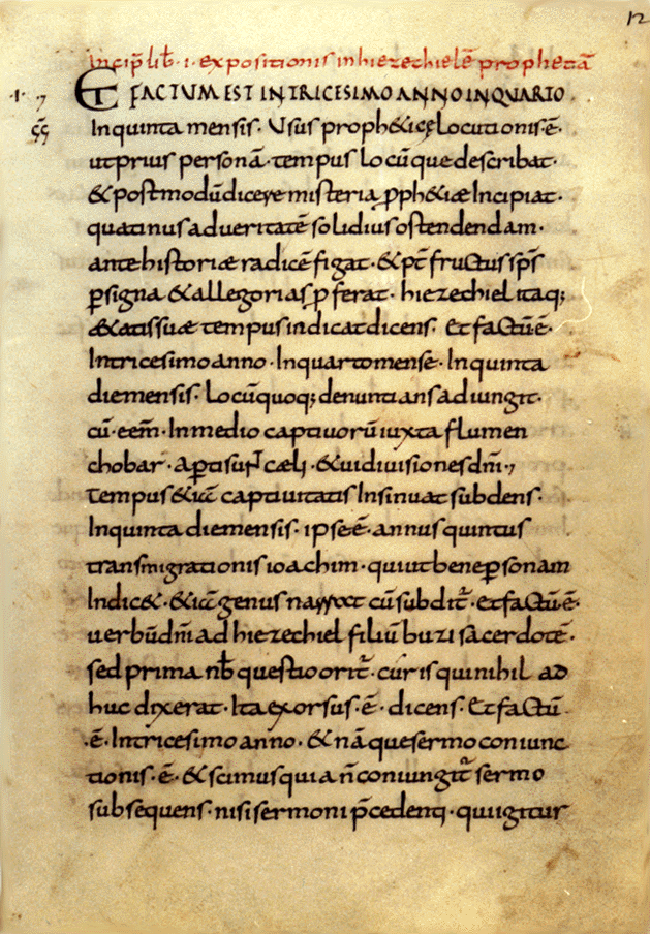 12
Incip̄ lib̄ · i · expositionis in hiezechielē prophetā
ET FACTUM EST IN TRICESIMO ANNO IN QUARTO
·I· 7
In quinta mensis · Usus proph&icę locutionis ·ē·
ut prius personā · tempus locūque describat ·
& postmodū dicere misteria ꝓph&iæ Incipiat ·
quatinus ad veritatē solidius ostendendam ·
ante historiæ radicē figat · & pt̄ fructus sp̄s
ꝑ signa & allegorias ꝓferat · hiezechiel itaq;
æ&atis suæ tempus indicat dicens · Et factū ē ·
In tricesimo anno · In quarto mense · In quinta
die mensis · Locū quoq; denuntians adiungit ·
cū · eēm̄ · In medio captivorū iuxta flumen
chobar · aꝑti sur̄ cæli · & vidi visiones dm̄ · 7
tempus & iā captivitatis Insinuat subdens ·
In quinta die mensis · ipse ē · annus quintus
transmigrationis ioachim · qui ut bene ꝑsonam
Indic& · & iā genus cū subdit̄ · Et factū ē ·
verbū dn̄i ad hiezechiel filiū buzi sacerdotē ·
sed prima nb̄ questio orit̄ · cur is qui nihil ad
huc dixerat · Ita exorsus · ē · dicens · Et factū
· ē · In tricesimo anno · & nāque sermo coniunc
tionis · ē · & scimus quia n̄ coniungit̄ sermo
subsequens · nisi sermoni p̄cedenti · qui igitur